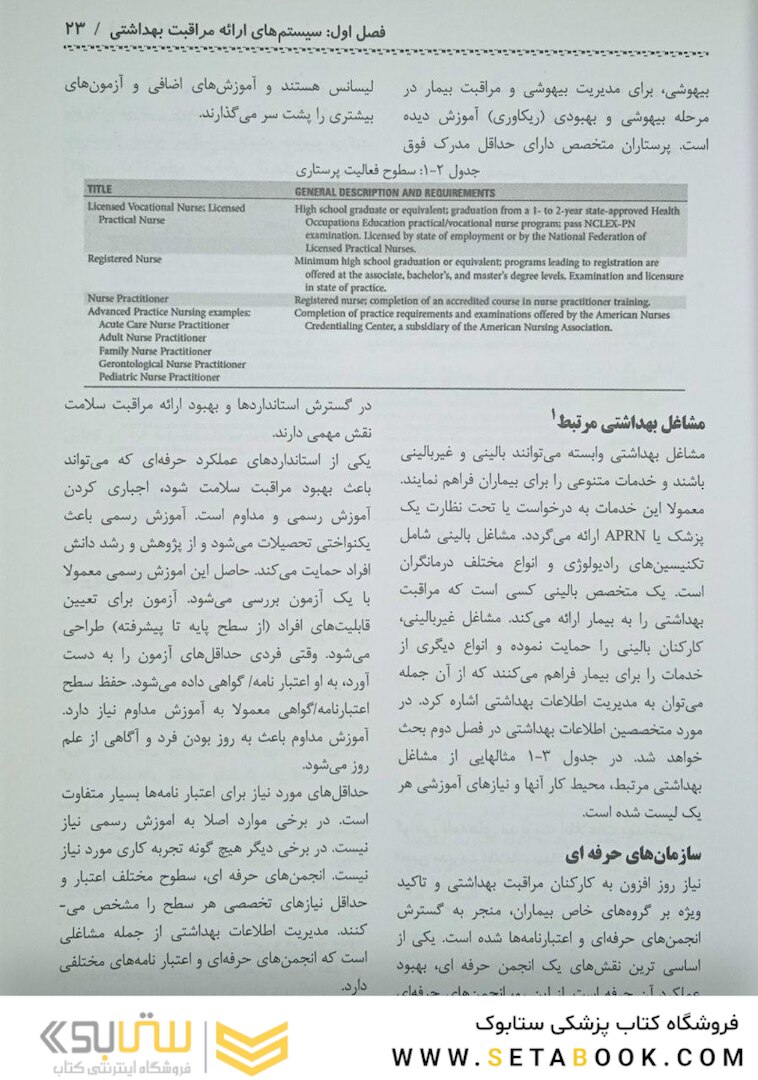 فصل اول: سیستم‌های ارائه مراقبت بهداشتی / ۲۳
بیهوشی، برای مدیریت بیهوشی و مراقبت بیمار در
مرحله بیهوشی و بهبودی (ریکاوری) آموزش دیده
است. پرستاران متخصص دارای حداقل مدرک فوق
لیسانس هستند و آموزش‌های اضافی و آزمون‌های
بیشتری را پشت سر می‌گذارند.
جدول ۲-۱: سطوح فعالیت پرستاری
TITLE GENERAL DESCRIPTION AND REQUIREMENTS
Licensed Vocational Nurse; Licensed High school graduate or equivalent; graduation from a 1- to 2-year state-approved Health
Practical Nurse Occupations Education practical/vocational nurse program; pass NCLEX-PN
examination. Licensed by state of employment or by the National Federation of
Licensed Practical Nurses.
Registered Nurse Minimum high school graduation or equivalent; programs leading to registration are
offered at the associate, bachelor's, and master's degree levels. Examination and licensure
in state of practice.
Nurse Practitioner Registered nurse; completion of an accredited course in nurse practitioner training.
Advanced Practice Nursing examples: Completion of practice requirements and examinations offered by the American Nurses
Acute Care Nurse Practitioner Credentialing Center, a subsidiary of the American Nursing Association.
Adult Nurse Practitioner
Family Nurse Practitioner
Gerontological Nurse Practitioner
Pediatric Nurse Practitioner
مشاغل بهداشتی مرتبط۱
مشاغل بهداشتی وابسته می‌توانند بالینی و غیربالینی
باشند و خدمات متنوعی را برای بیماران فراهم نمایند.
معمولا این خدمات به درخواست یا تحت نظارت یک
پزشک یا APRN ارائه می‌گردد. مشاغل بالینی شامل
تکنیسین‌های رادیولوژی و انواع مختلف درمانگران
است. یک متخصص بالینی کسی است که مراقبت
بهداشتی را به بیمار ارائه می‌کند. مشاغل غیربالینی،
کارکنان بالینی را حمایت نموده و انواع دیگری از
خدمات را برای بیمار فراهم می‌کنند که از آن جمله
می‌توان به مدیریت اطلاعات بهداشتی اشاره کرد. در
مورد متخصصین اطلاعات بهداشتی در فصل دوم بحث
خواهد شد. در جدول ۳-۱ مثالهایی از مشاغل
بهداشتی مرتبط، محیط کار آنها و نیازهای آموزشی هر
یک لیست شده است.
سازمان‌های حرفه ای
نیاز روز افزون به کارکنان مراقبت بهداشتی و تاکید
ویژه بر گروه‌های خاص بیماران، منجر به گسترش
انجمن‌های حرفه‌ای و اعتبارنامه‌ها شده است. یکی از
اساسی ترین نقش‌های یک انجمن حرفه ای، بهبود
عملکرد آن حرفه است. از این رو، انجمن‌های حرفه‌ای
در گسترش استانداردها و بهبود ارائه مراقبت سلامت
نقش مهمی دارند.
یکی از استانداردهای عملکرد حرفه‌ای که می‌تواند
باعث بهبود مراقبت سلامت شود، اجباری کردن
آموزش رسمی و مداوم است. آموزش رسمی باعث
یکنواختی تحصیلات می‌شود و از پژوهش و رشد دانش
افراد حمایت می‌کند. حاصل این اموزش رسمی معمولا
با یک آزمون بررسی می‌شود. آزمون برای تعیین
قابلیت‌های افراد (از سطح پایه تا پیشرفته) طراحی
می‌شود. وقتی فردی حداقل‌های آزمون را به دست
آورد، به او اعتبار نامه/ گواهی داده می‌شود. حفظ سطح
اعتبارنامه/گواهی معمولا به آموزش مداوم نیاز دارد.
آموزش مداوم باعث به روز بودن فرد و آگاهی از علم
روز می‌شود.
حداقل‌های مورد نیاز برای اعتبار نامه‌ها بسیار متفاوت
است. در برخی موارد اصلا به اموزش رسمی نیاز
نیست. در برخی دیگر هیچ گونه تجربه کاری مورد نیاز
نیست. انجمن‌های حرفه ای، سطوح مختلف اعتبار و
حداقل نیازهای تخصصی هر سطح را مشخص می-
کنند. مدیریت اطلاعات بهداشتی از جمله مشاغلی
است که انجمن‌های حرفه‌ای و اعتبار نامه‌های مختلفی
دارد.
فروشگاه کتاب پزشکی ستابوک
WWW.SETABOOK.COM
ستابوک
فروشگاه اینترنتی کتاب